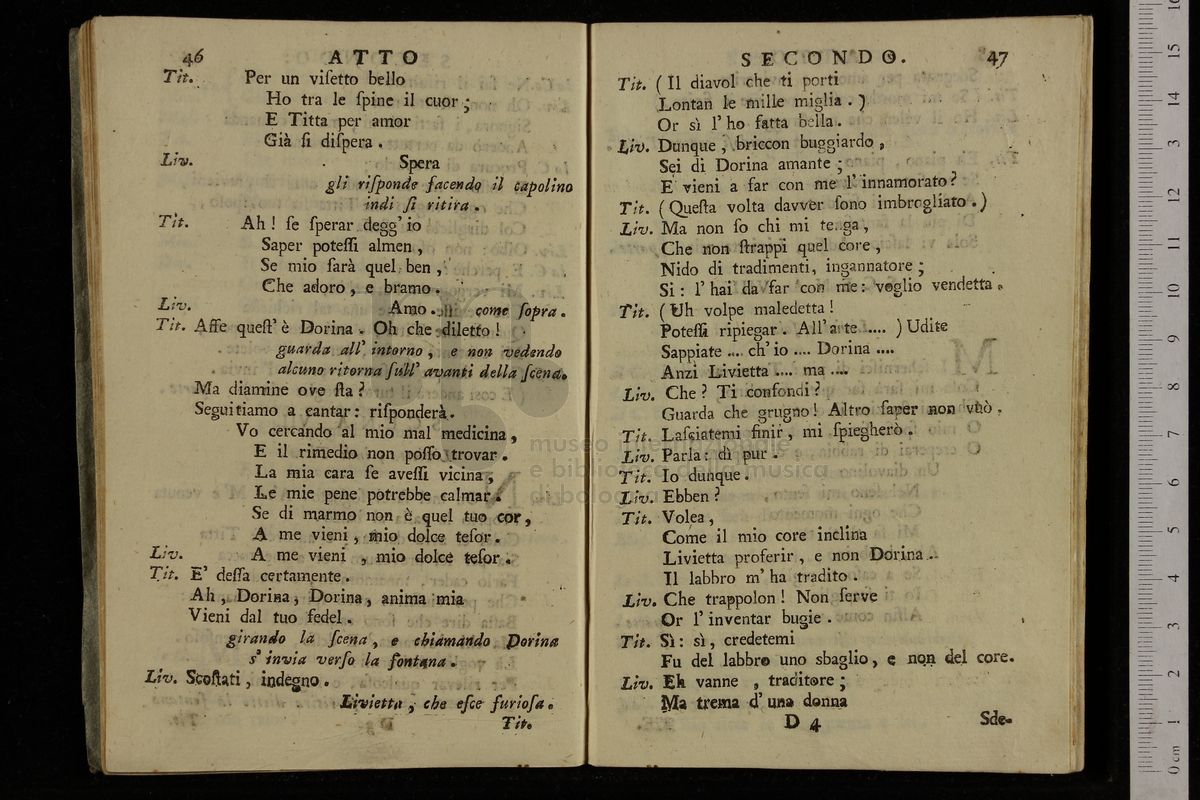 46 ATTO
Tit. Per un viſetto bello
Ho tra le ſpine il cuor;
E Titta per amor
Già ſi diſpera.
Liv. Spera
gli riſponde facendo il capolino
indi ſi ritira.
Tit. Ah! ſe ſperar degg' io
Saper poteſſi almen,
Se mio ſarà quel ben,
Che adoro, e bramo.
Liv. Amo. come ſopra.
Tit. Affe queſt' è Dorina. Oh che diletto!
guarda all' intorno, e non vedendo
alcuno ritorna ſull' avanti della ſcena.
Ma diamine ove ſta?
Seguitiamo a cantar: riſponderà.
Vo cercando al mio mal' medicina,
E il rimedio non poſſo trovar.
La mia cara ſe aveſſi vicina,
Le mie pene potrebbe calmar.
Se di marmo non è quel tuo cor,
A me vieni, mio dolce teſor.
Liv. A me vieni, mio dolce teſor.
Tit. E' deſſa certamente.
Ah, Dorina, Dorina, anima mia
Vieni dal tuo fedel.
girando la ſcena, e chiamando Dorina
s' invia verſo la fontana.
Liv. Scoſtati, indegno.
Livietta, che eſce furioſa.
Tit.
SECONDO. 47
Tit. (Il diavol che ti porti
Lontan le mille miglia.)
Or sì l' ho fatta bella.
Liv. Dunque, briccon buggiardo,
Sei di Dorina amante;
E vieni a far con me l' innamorato?
Tit. (Queſta volta davver ſono imbrogliato.)
Liv. Ma non ſo chi mi tenga,
Che non ſtrappi quel core,
Nido di tradimenti, ingannatore;
Si: l' hai da far con me: voglio vendetta.
Tit. (Uh volpe maledetta!
Poteſſi ripiegar. All' arte ....) Udite
Sappiate ... ch' io .... Dorina ....
Anzi Livietta .... ma ....
Liv. Che? Ti confondi?
Guarda che grugno! Altro ſaper non vuò.
Tit. Laſciatemi finir, mi ſpiegherò.
Liv. Parla: dì pur.
Tit. Io dunque.
Liv. Ebben?
Tit. Volea,
Come il mio core inclina
Livietta proferir, e non Dorina.
Il labbro m' ha tradito.
Liv. Che trappolon! Non ſerve
Or l' inventar bugie.
Tit. Sì: sì, credetemi
Fu del labbro uno sbaglio, e non del core.
Liv. Eh vanne, traditore;
Ma trema d' una donna
D 4 Sde-
museo internazionale
e biblioteca della musica
di bologna
0 cm 1 2 3 4 5 6 7 8 9 10 11 12 13 14 15 16